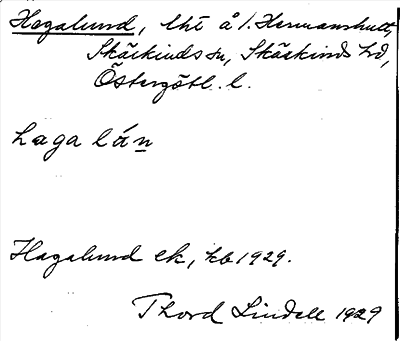 Hagalund, lht å l. Hermanshult,
Skärkinds sn, Skärkinds hd,
Östergötl. l.
haga lún
Hagalund ek, kb 1929.
Thord Lindell 1929